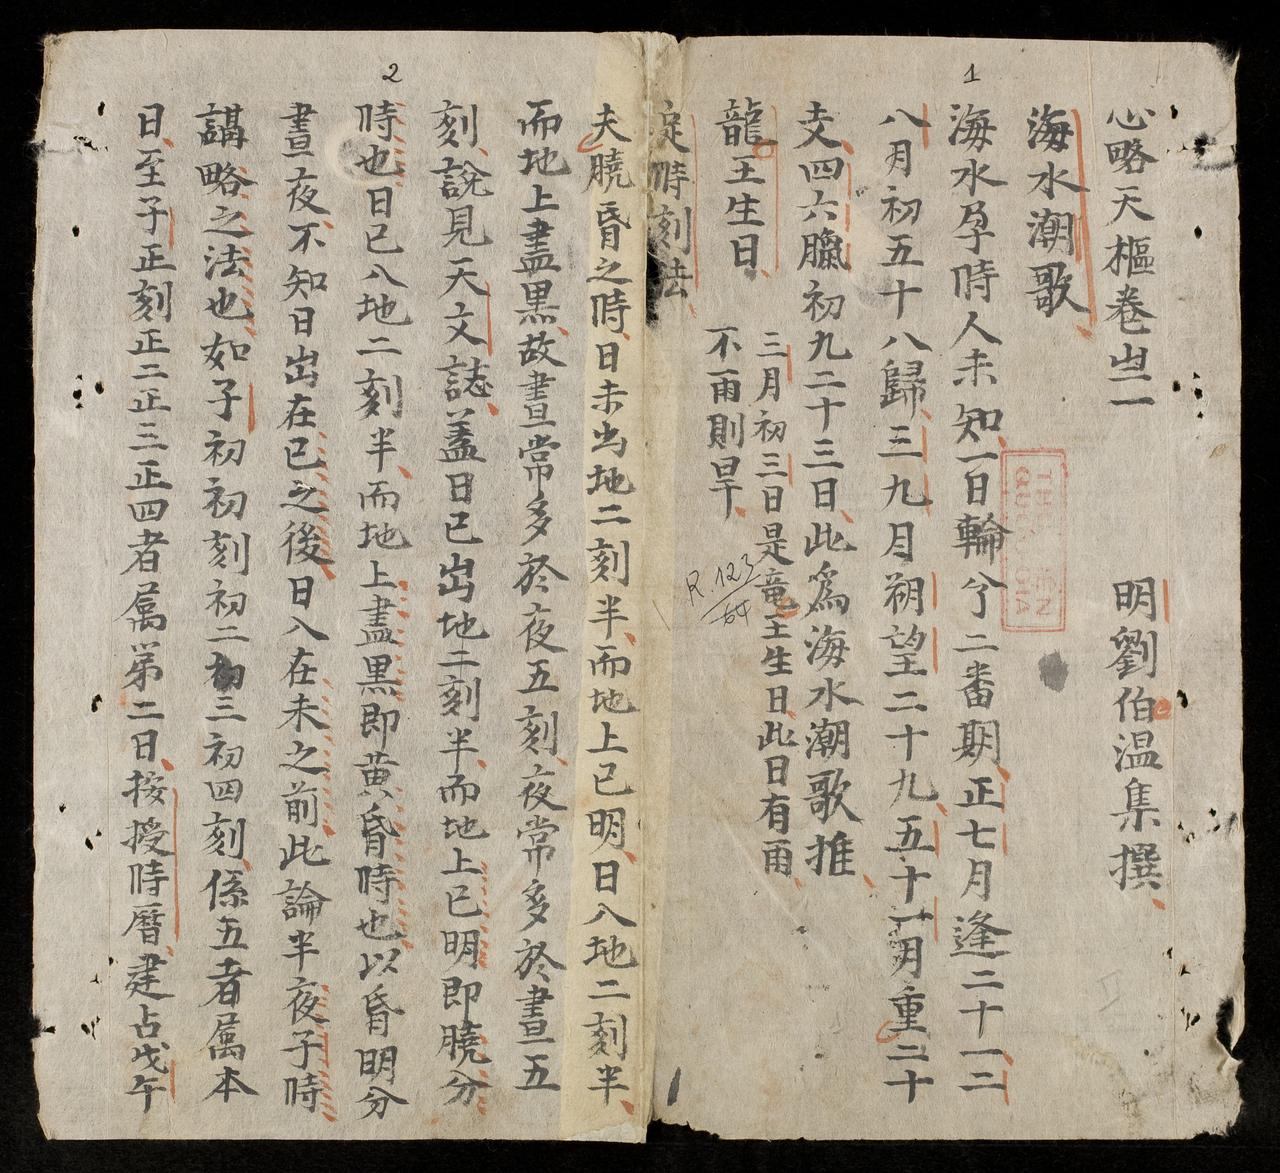 1
心略天樞卷之二 明劉伯温集撰
海水潮歌
海水孕時人未知一日輪兮二番期正七月逢二十一二
八月初五十八歸三九月朔望二十九五十一月重二十
支四六臘初九二十三日此爲海水潮歌推
龍王生日
三月初三日是竜王生日此日有雨
不雨則旱
R 123
64
定時刻法
2
夫曉昏之時日未出地二刻半而地上已明日入地二刻半
而地上盡黒故晝常多於夜五刻夜常多於晝五
刻說見天文誌盖日已出地二刻半而地上已明即曉分
時也日已入地二刻半而地上盡黒即黄昏時也以昏明分
晝夜不知日出在已之後日入在未之前此論半夜子時
講略之法也如子初初刻初二初三初四刻係五者屬本
日至子正刻正二正三正四者属苐二日按授時曆建占戊午